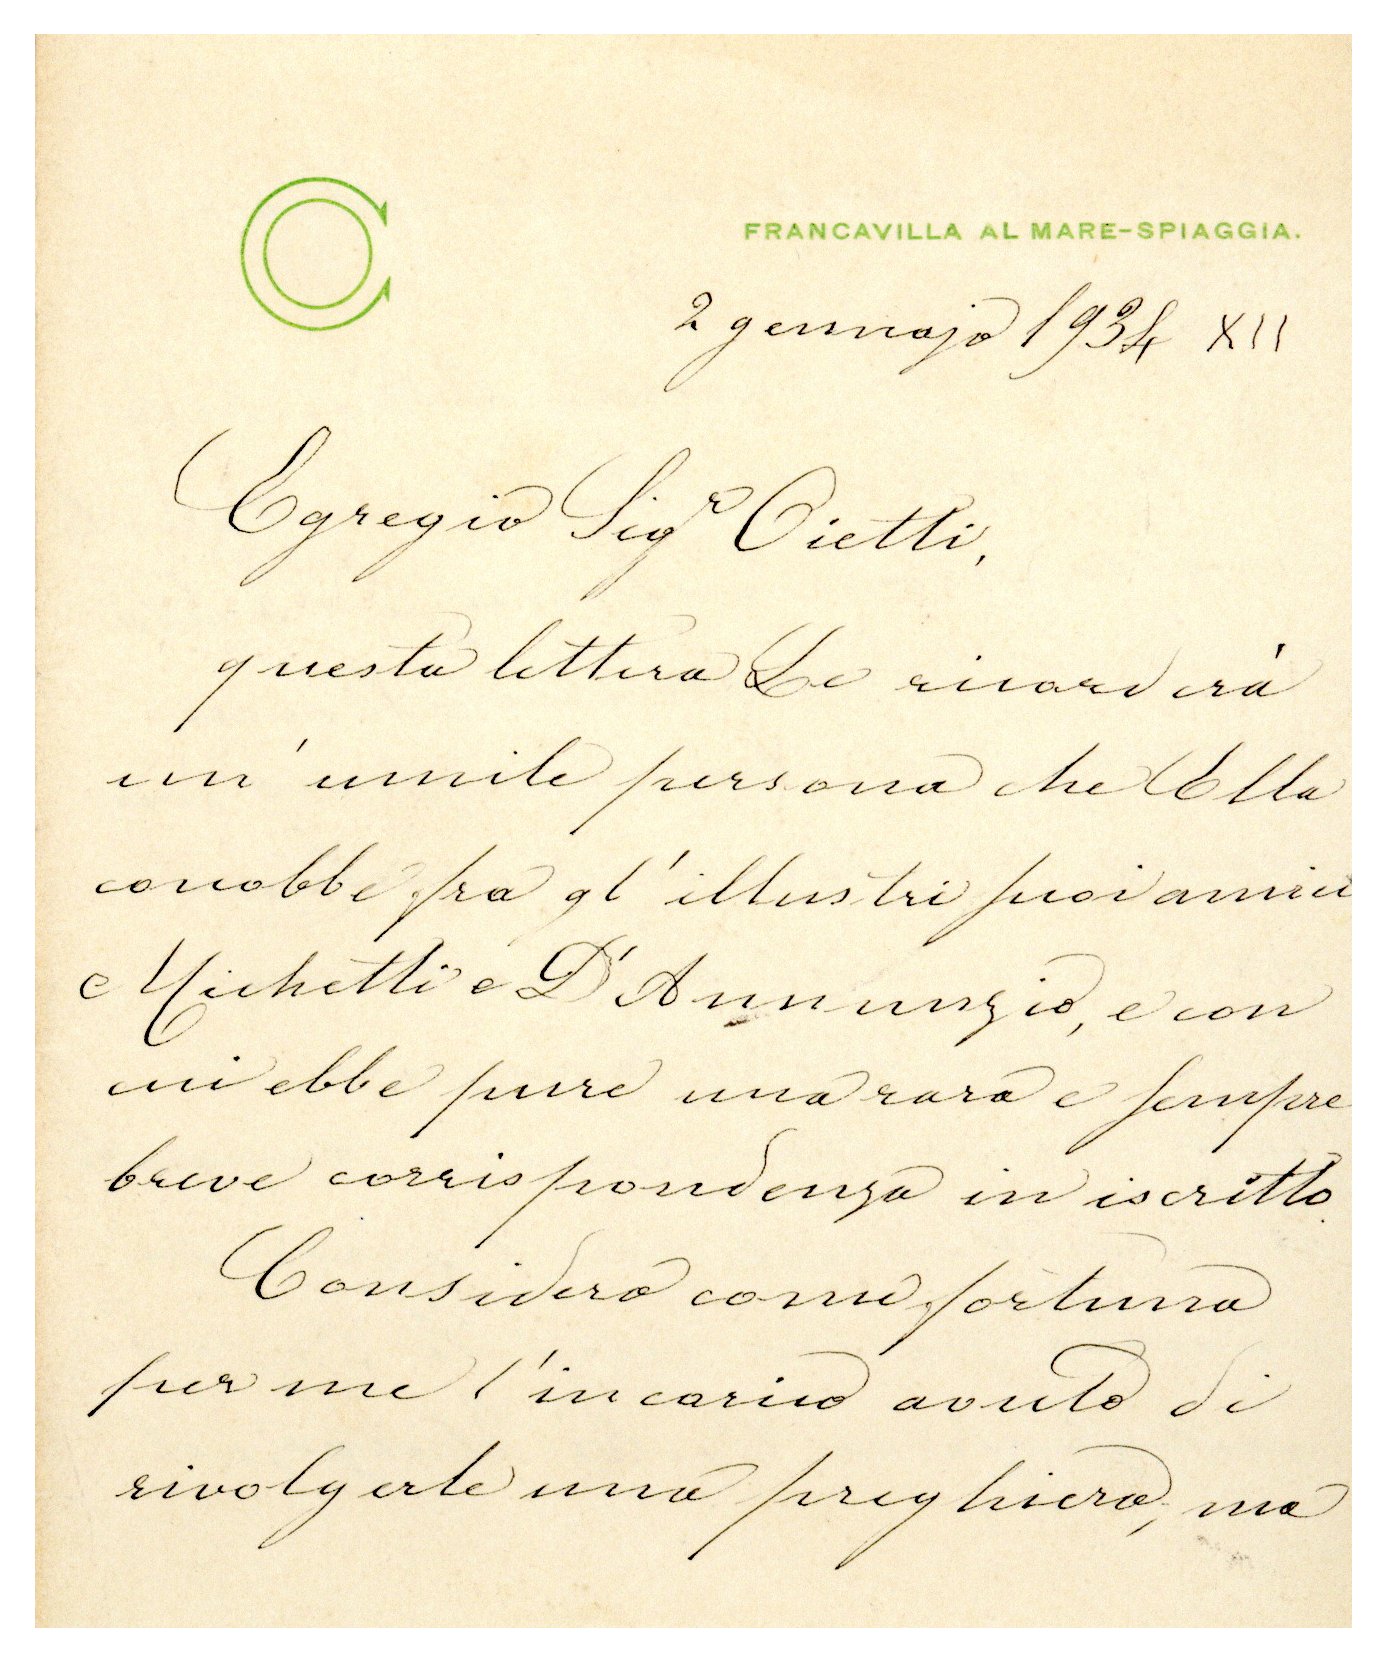 C
FRANCAVILLA AL MARE-SPIAGGIA.
2 gennajo 1934 XII
Egregio Sigr Oietti,
questa lettera Le ricorderà
un' umile persona che Ella
conobbe fra gl' illustri suoi amici
Michetti e D'Annunzio, e con
cui ebbe pure una rara e sempre
breve corrispondenza in iscritto.
Considero come fortuna
per me l'incarico avuto di
rivolgerle una preghiera, ma